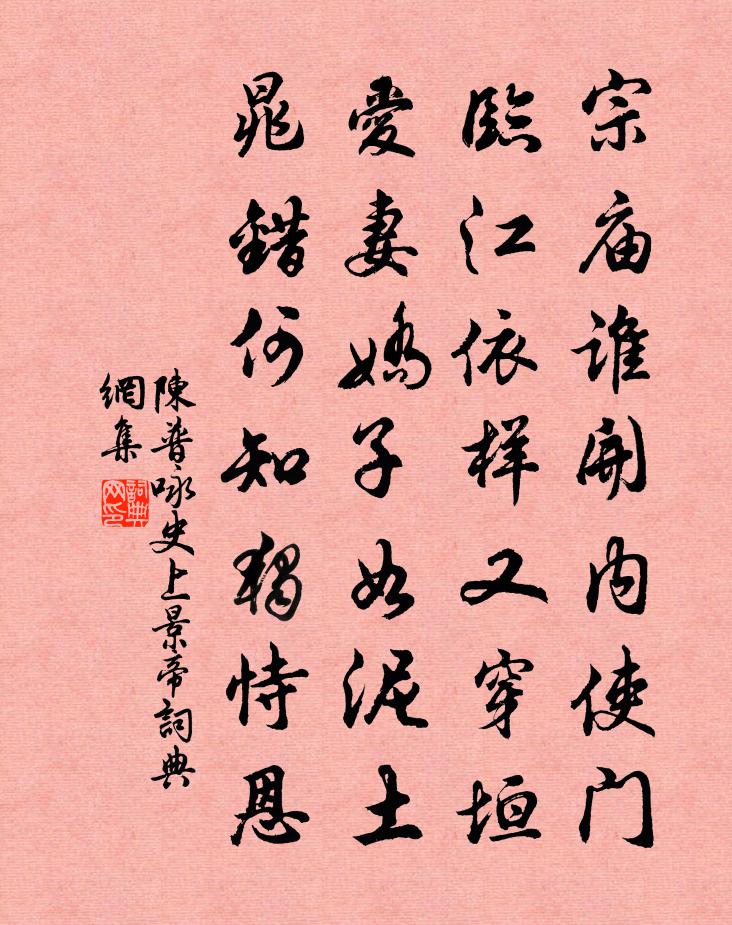 宗庙谁開内使门
臨江依样又穿垣
愛妻嬌子如泥土
晁錯何知独恃恩
陳普咏史上景帝詞典
網集
詞典網印